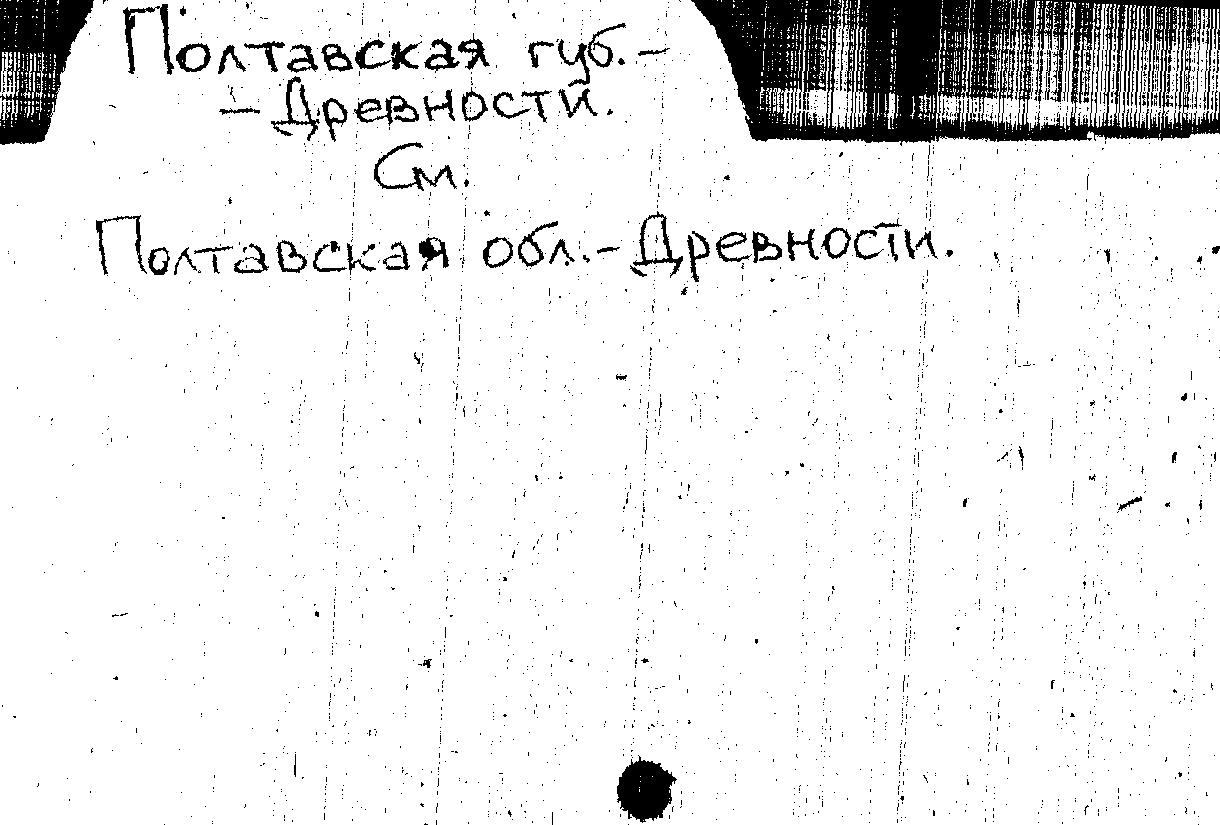 Полтавская губ.-
-Древности.
См.
Полтавская обл.-Древности.